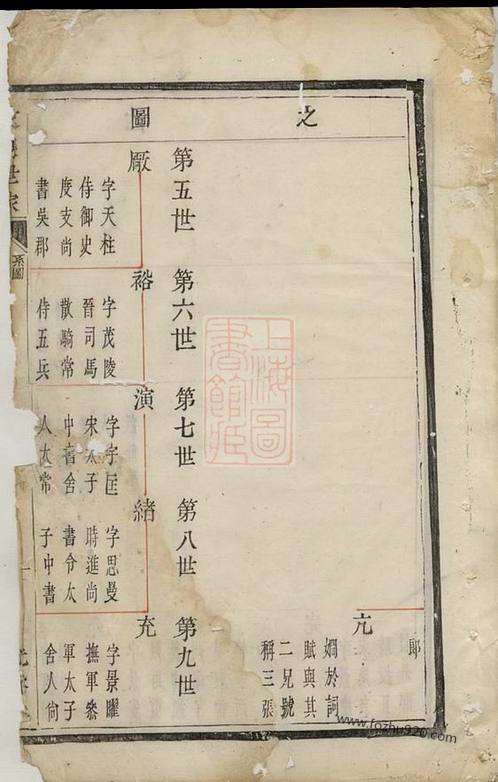 之
圖
郎
亢
嫺於詞
賦與其
二兄號
稱三張
第五世
第六世
第七世
第八世
第九世
厰
字天柱
侍御史
度支尚
書吳郡
裕
字茂陵
晉司馬
散騎常
侍五兵
演
字字匡
宋太子
中舍舍
人太常
緒
字思曼
時進尚
書令太
子中書
充
字景曜
撫軍參
軍太子
舍人尙
世家
系圖
上海圖
書館藏
www.fozhu920.com